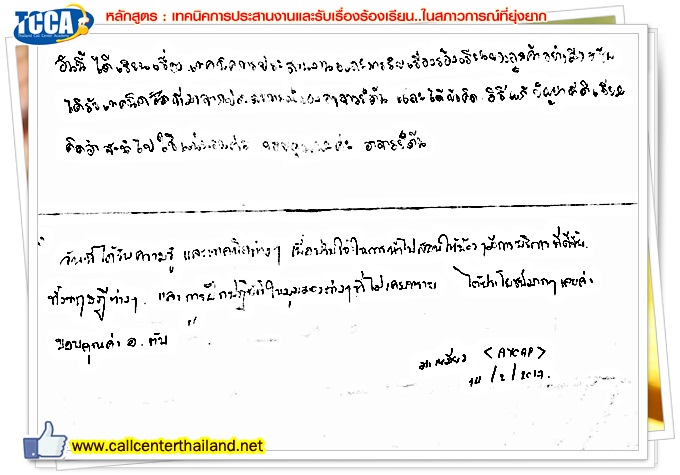 TCCA
Thailand Call Center Academy
หลักสูตร : เทคนิคการประสานงานและรับเรื่องร้องเรียน..ในสภาวการณ์ที่ยุ่งยาก
วันนี้ ได้เรียนเรื่อง เทคนิคการประสานงานและการรับเรื่องร้องเรียนของลูกค้าอย่างมีระดับ
ได้รับเทคนิค ที่มาจากประสบการณ์ของอาจารย์ตัน และได้ข้อคิด วิธีแก้ปัญหาที่ดีเยี่ยม
คิดว่าจะนำไปใช้แน่นอนค่ะ ขอบคุณค่ะ อาจารย์ตัน
วันนี้ได้รับความรู้ และเทคนิคต่างๆ เพื่อนำไปใช้ในการ ให้น้องๆมีการบริการที่ดีขึ้น
ทั้งทฤษฎีต่างๆ และ การฝึกปฏิบัติในมุมมองต่างๆที่ไม่เคยทราบ ได้ประโยชน์มากๆ เลยค่ะ
ขอบคุณค่ะ อ. ตัน
<AYCAP>
14/2/2017.
www.callcenterthailand.net